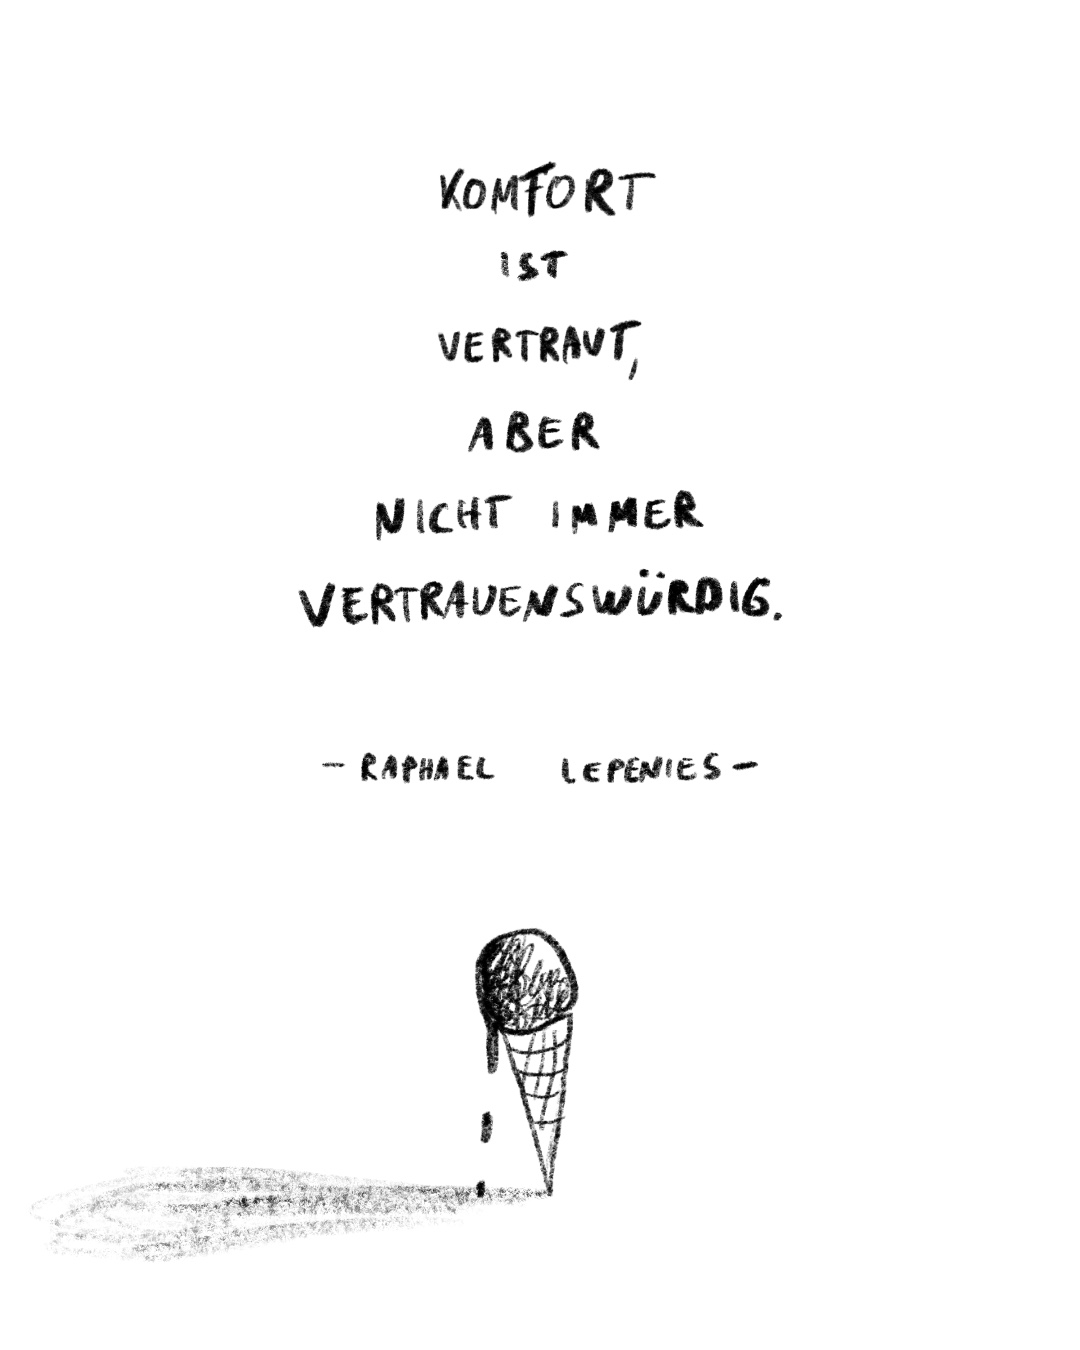 KOMFORT
IST
VERTRAUT,
ABER
NICHT IMMER
VERTRAUENSWÜRDIG.
- RAPHAEL LEPENIES -